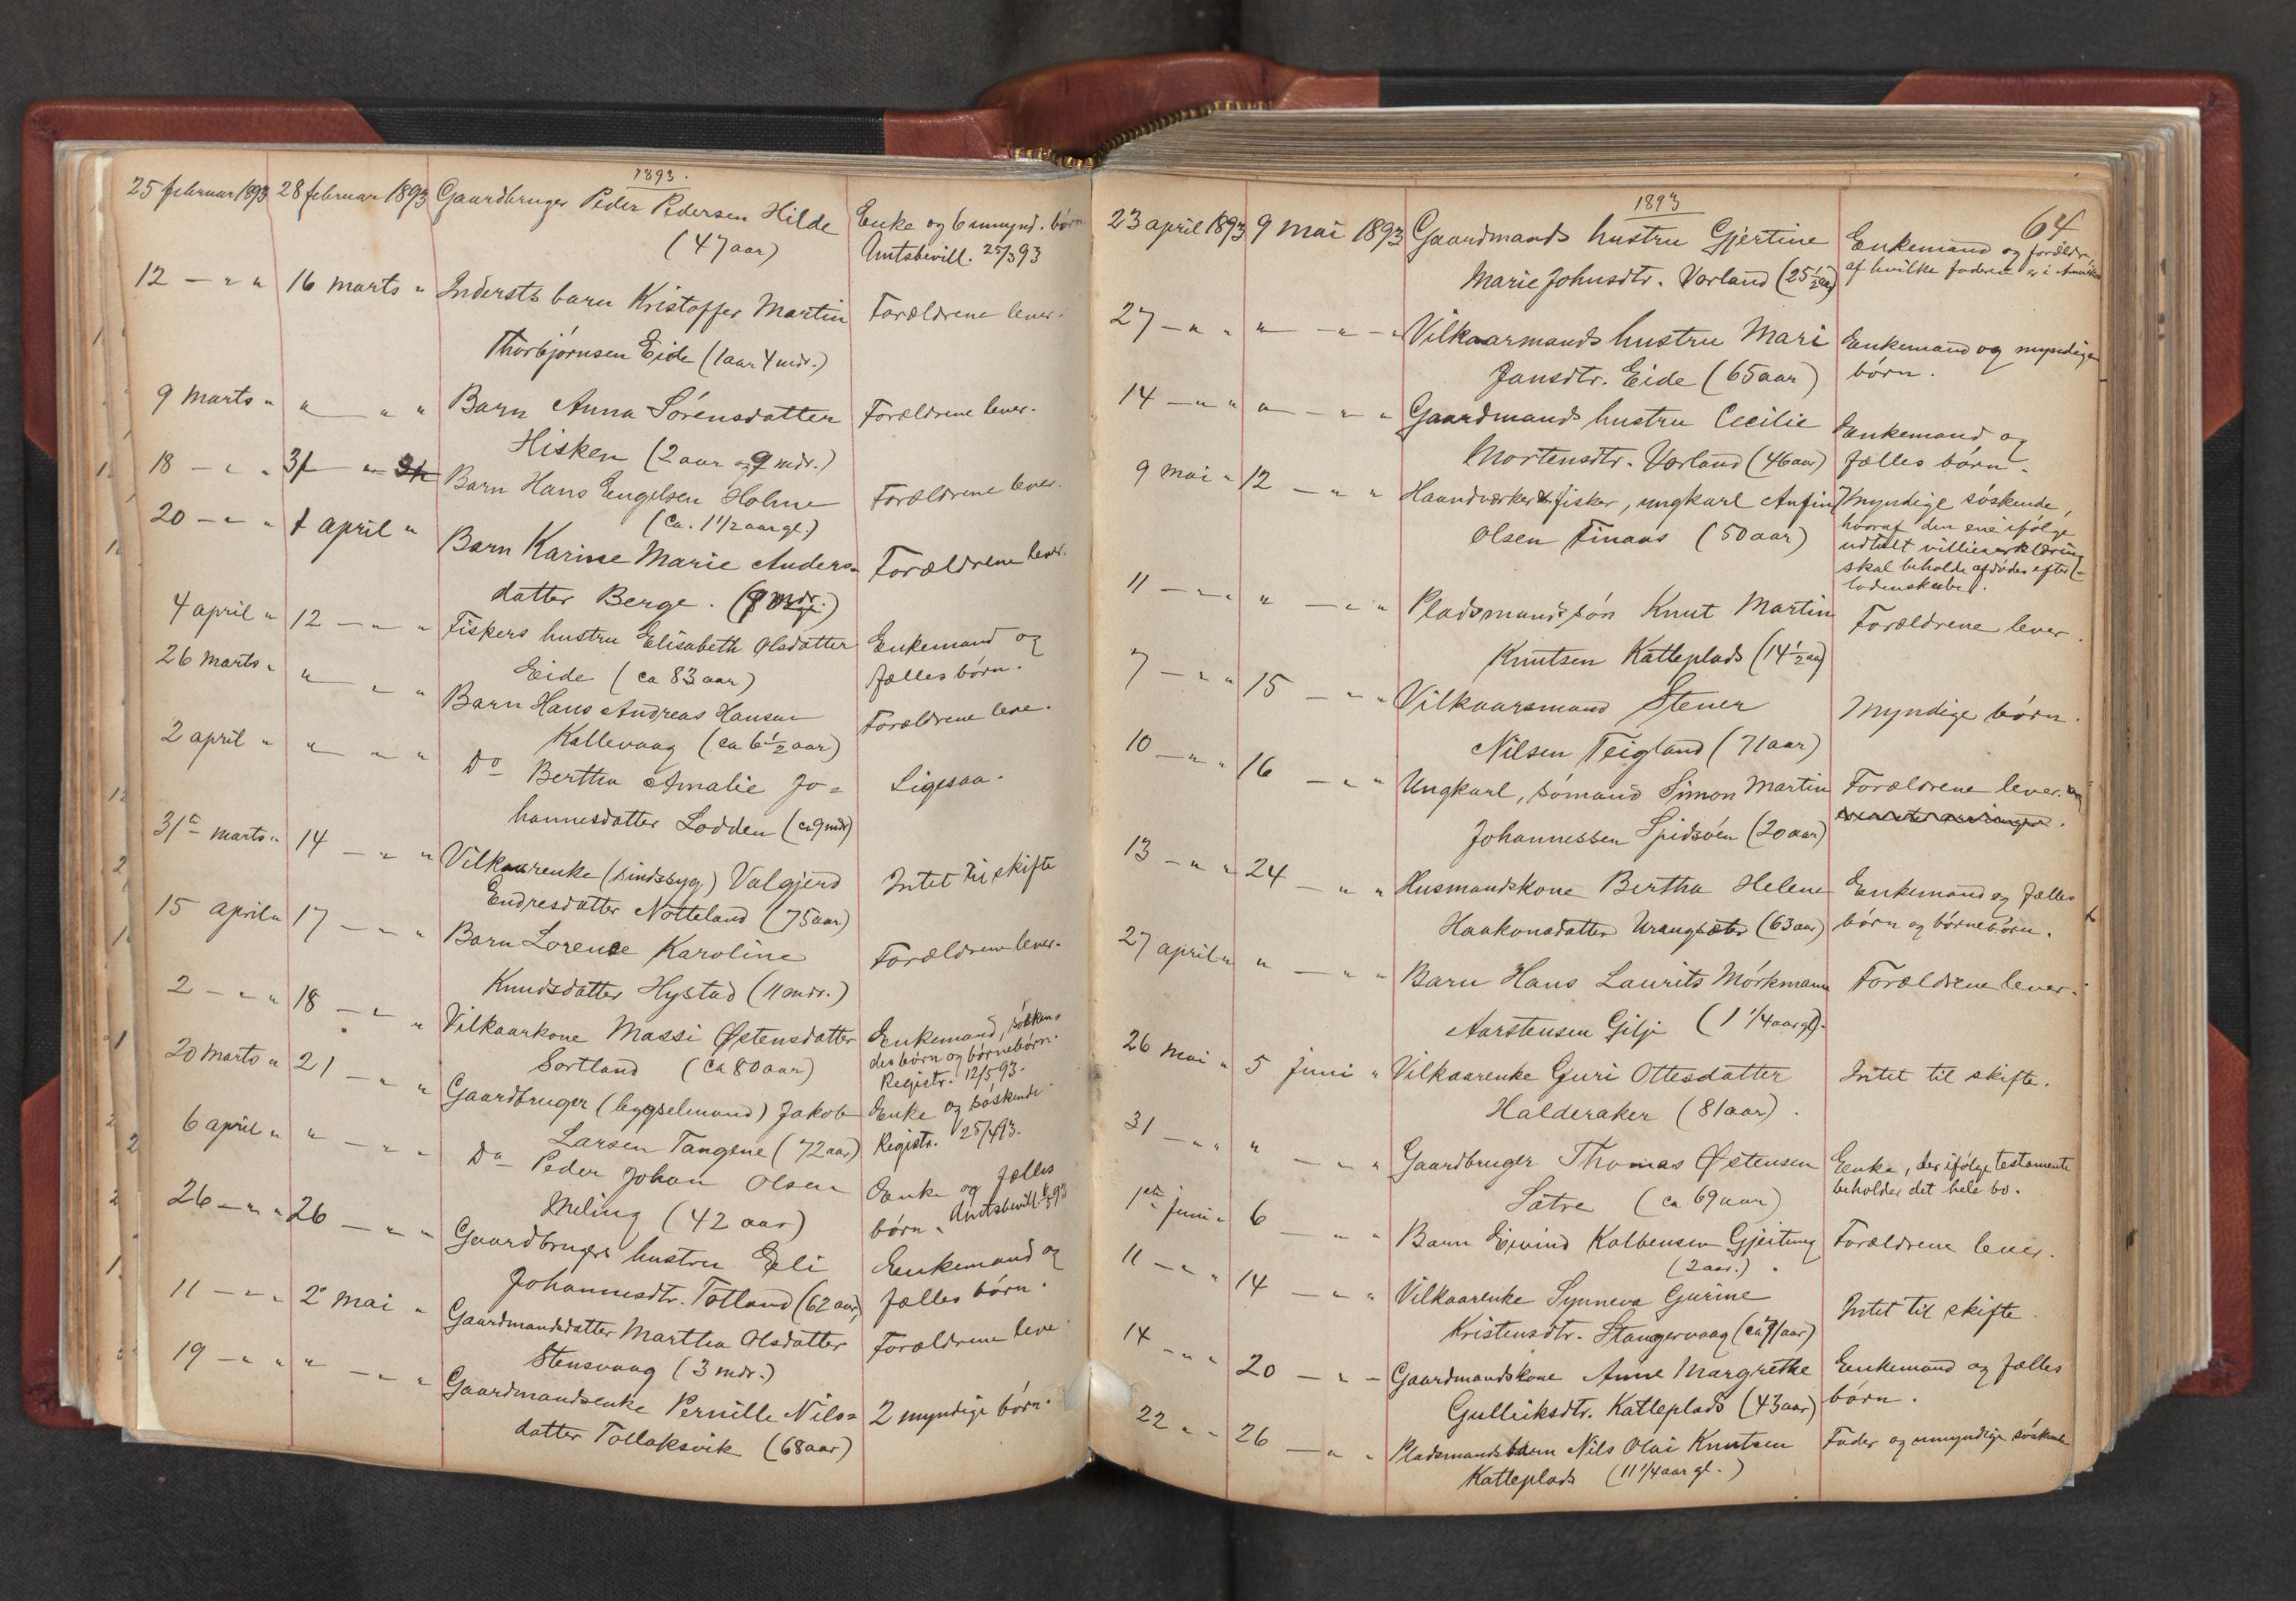 1893.
25 februar 1893 28 februar 1893 Gaardbruger Peder Pedersen Hilde Enke og 6 umynd. børn
(47 aar) Amtsbevill. 25/3 93
12 — " " 16 marts " Inderstsbarn Kristoffer Martin Forældrene lever.
Thorbjørnsen Eide (1 aar 4 mdr.)
9 marts " " — " " Barn Anna Sørensdatter Forældrene lever.
Hisken (2 aar og 9 mdr.)
18 — " " — " Barn Hans Engelsen Holme Forældrene lever.
(ca. 1 1/2 aar gl.)
20 — " " 1 april " Barn Karine Marie Anders=
datter Berge. Forældrene lever.
4 april " 12 — " " Fiskers hustru Elisabeth Olsdatter Enkemand og
Eide (ca 83 aar) fælles børn.
26 marts " " — " " Barn Hans Andreas Hansen Forældrene leve.
Kallevaag (ca 6 1/2 aar)
2 april " " — " " Do Bertha Amalie Jo= Ligesaa.
hannesdatter Lodden (ca 9 mdr)
31te marts " 14 — " " Vilkaarenke (sindssyg) Valgjerd Intet til skifte
Endresdatter Notteland (75 aar)
15 april " 17 — " " Barn Lorence Karoline Forældrene lever.
Knudsdatter Hystad (11 mdr.)
2 — " " 18 — " " Vilkaarkone Massi Østensdatter Enkemand, søsken=
Sortland (ca 80 aar) des børn og børnebørn.
Registr. 12/5 93.
20 marts " 21 — " " Gaardbruger (bygselmand) Jakob Enke og søskende.
Larsen Tangene (72 aar) Registr. 25/4 93.
6 april " " — " " Do Peder Johan Olsen Enke og fælles
Meling (42 aar) børn. Amtsbevill.
26 — " " 26 — " " Gaardbrugers hustru Eli Enkemand og
Johannesdtr. Totland (62 aar) fælles børn.
11 — " " 2 mai " Gaardmandsdatter Martha Olsdatter Forældrene leve.
Stensvaag (3 mdr.)
19 — " " " — " " Gaardmandsenke Pernille Nils= 2 myndige børn.
datter Tollaksvik (68 aar)
1893
64
23 april 1893 9 mai 1893 Gaardmands hustru Gjertine Enkemand og forældre,
Marie Johnsdtr. Vorland (25 1/2 aar) af hvilke faderen er i Amerika
27 — " " " — " " Vilkaarmands hustru Mari Enkemand og myndige
Jansdtr. Eide (65 aar) børn.
14 — " " " — " " Gaardmands hustru Cecilie Enkemand og
Mortensdtr. Vorland (46 aar) fælles børn.
9 mai " 12 — " " Haandværker & fisker, ungkarl Anfin Myndige søskende,
Olsen Finaas (50 aar) hvoraf den ene ifølge
udtalt villieserklæring
skal beholde afdødes efter=
ladenskaber.
11 — " " " — " " Pladsmandssøn Knut Martin Forældrene lever.
Knutsen Katleplads (14 1/2 aar)
7 — " " 15 — " " Vilkaarsmand Stener Myndige børn.
Nilsen Teigland (71 aar)
10 — " " 16 — " " Ungkarl, sømand Simon Martin Forældrene lever.
Johannessen Spidsøen (20 aar)
13 — " " 24 — " " Husmandskone Bertha Helene Enkemand og fælles
Haakonsdatter Vrangsæter (63 aar) børn og børnebørn.
27 april " " — " " Barn Hans Laurits Mørkmann Forældrene lever.
Aarstensen Gilje (1 1/4 aar gl).
26 mai " 5 juni " Vilkaarenke Guri Ottesdatter Intet til skifte.
Halderaker (81 aar).
31 — " " " — " " Gaardbruger Thomas Østensen Enke, der ifølge testamente
Sætre (ca 69 aar) beholder det hele bo.
1ste juni " 6 — " " Barn Eivind Kolbensen Gjeitung Forældrene lever.
(2 aar.)
11 — " " 14 — " " Vilkaarenke Synneva Gurine Intet til skifte.
Kristensdtr. Stangervaag (ca 71 aar)
14 — " " 20 — " " Gaardmandskone Anne Margrethe Enkemand og fælles
Gulleiksdtr. Katleplads (43 aar) børn.
22 " " 26 — " " Pladsmandsbarn Nils Olai Knutsen Fader og umyndige søskende
Katleplads (11 1/4 aar gl.)